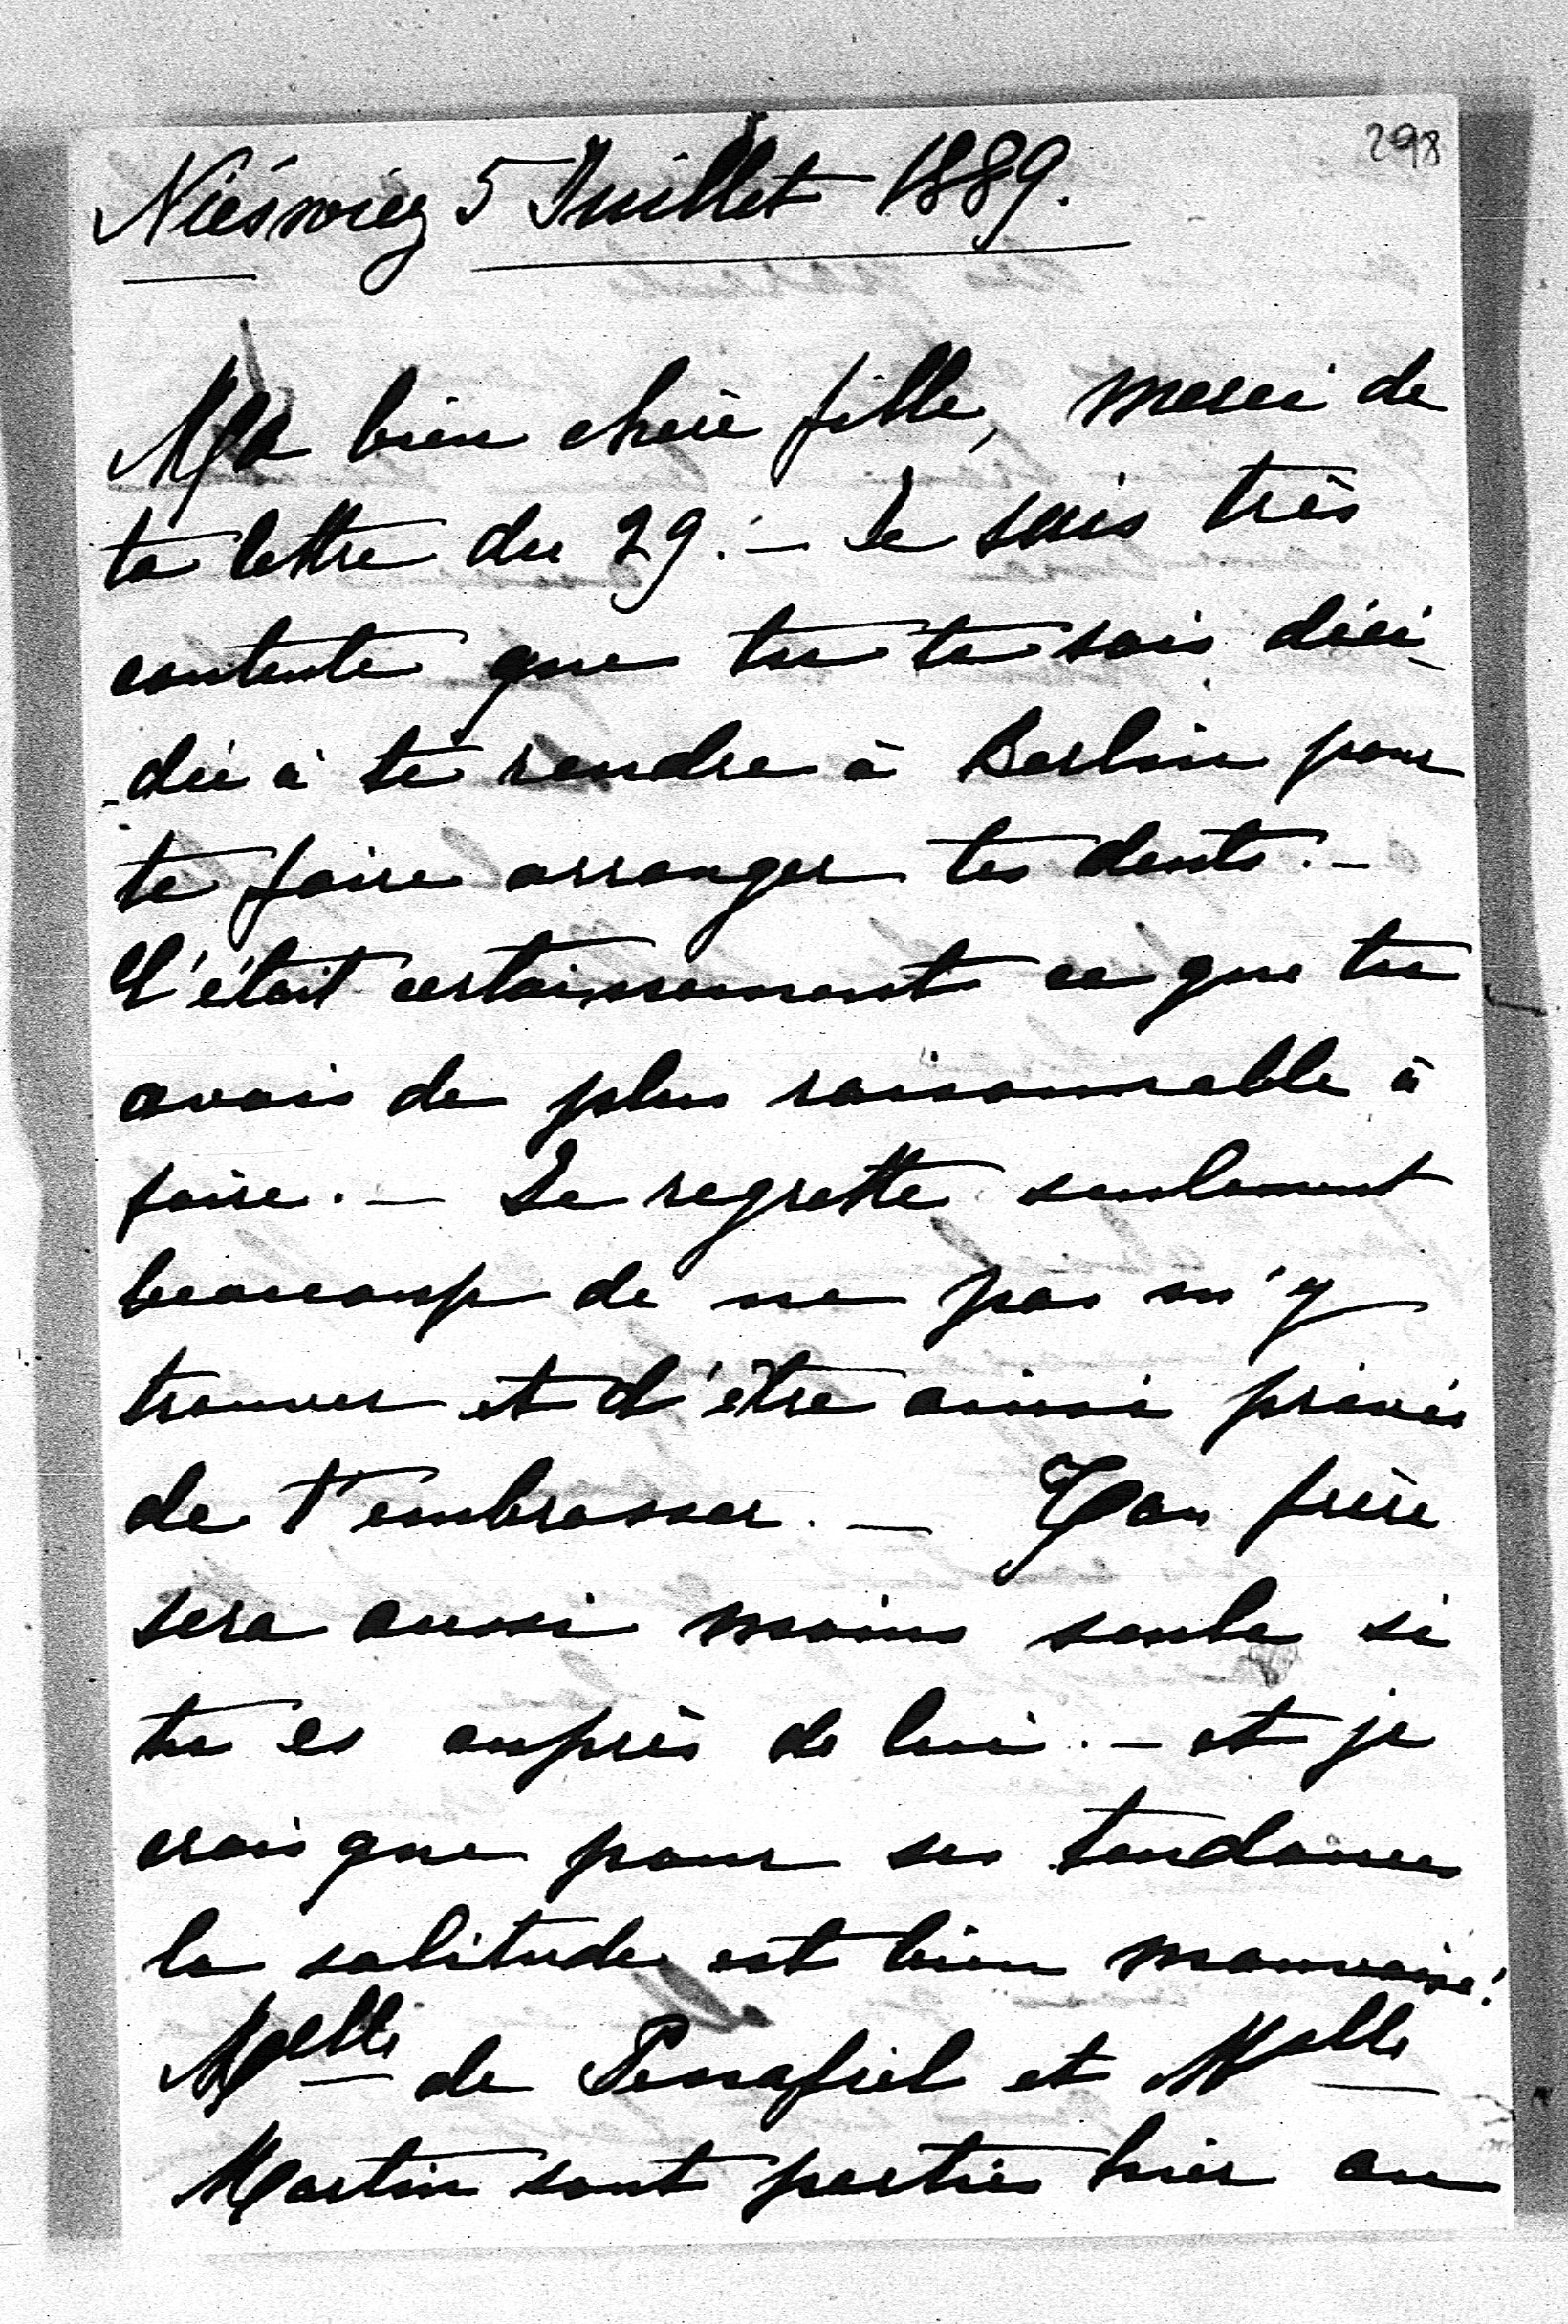 298
Nieświeź 5 Juillet 1889.
Ma bien chère fille, merci de
ta lettre du 29. — Je suis très
contente que tu te sois déci-
-dée à te rendre à Berlin pour
te faire arranger tes dents. —
C'était certainement ce que tu
avais de plus raisonnable à
faire. — Je regrette seulement
beaucoup de ne pas m'y
trouver et d'être ainsi privée
de t'embrasser. — Ton frère
sera aussi moins seul si
tu es auprès de lui. — et je
crois que pour ses tendances
la solitude est bien mauvaise!
Melle de Penafiel et Melle
Martin sont parties hier au